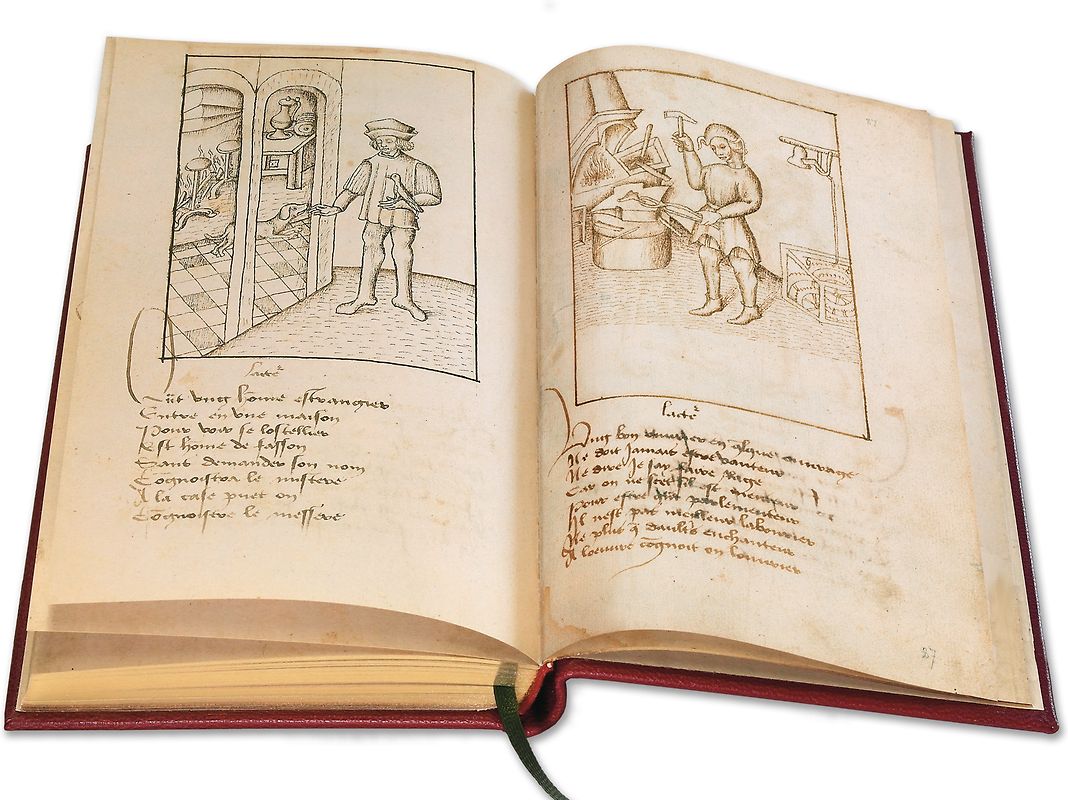 lacte^r
Sūt vng home estrangier
Entre en vne maison
Pour voir se lostellier
Est home de fasson
Sans demander son nom
Cognoistra le mistere
A la case puet on
Cognoistre le messere
87
lacte^r
Vng bon ouurage
Ne doit Jamais estre vanteur
Ne dire Je say faire Rage
Car on ne scet sil est menteur
Pour estre grant parlementeur
Il nest pas meilleur labourier
Ne plus q̄ daultrs enchanteur
A loeuure cognoit on louurier
87